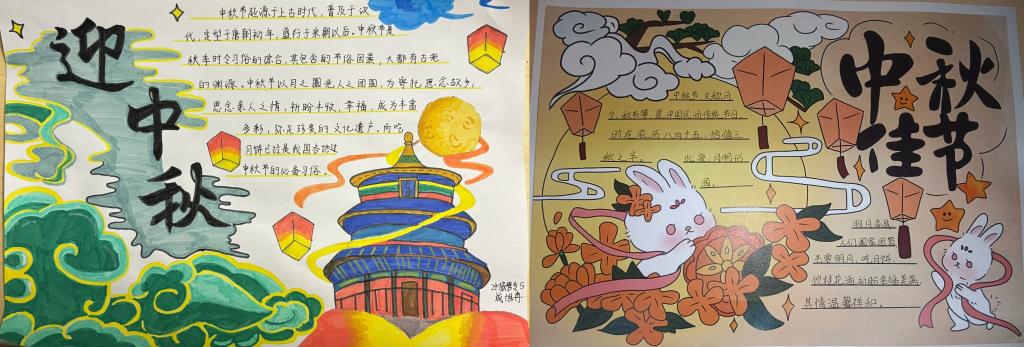 迎
中
秋
中秋节起源于上古时代，普及于汉
代，定型于唐朝初年，盛行于宋朝以后。中秋节是
秋季时令习俗的综合，其包含的节俗因素，大都有古老
的渊源。中秋节以月之圆兆人之团圆，为寄托思念故乡，
思念亲人之情，祈盼丰收、幸福，成为丰富
多彩、弥足珍贵的文化遗产。而吃
月饼已经是我国各地过
中秋节的必备习俗。
中秋
佳节
中秋节，又称月
夕、秋节等，是中国民间传统节日
时在农历八月十五，恰值三
秋之半。 此夜，月圆形
圆。
明月高悬，
人们阖家团聚
共赏明月，吃月饼，
饮桂花酒，祈盼幸福美满，
其情温馨祥和。